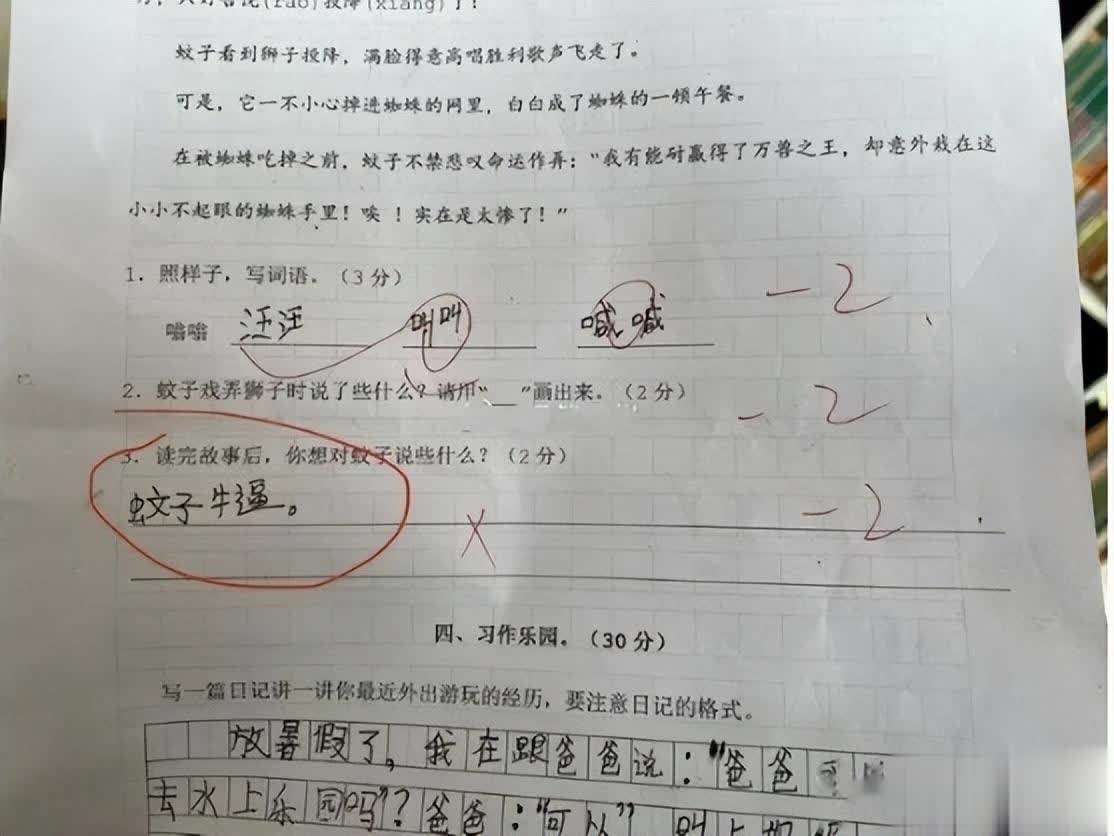 饶(ráo)投降(xiáng)了!
蚊子看到狮子投降，满脸得意高唱胜利歌声飞走了。
可是，它一不小心掉进蜘蛛的网里，白白成了蜘蛛的一顿午餐。
在被蜘蛛吃掉之前，蚊子不禁悲叹命运作弄："我有能耐赢得了万兽之王，却意外栽在这
小小不起眼的蜘蛛手里！唉！实在是太惨了！"
1. 照样子，写词语。（3分）
-2
嗡嗡 汪汪 叫叫 喊喊
2. 蚊子戏弄狮子时说了些什么？请用"__"画出来。（2分）
-2
3. 读完故事后，你想对蚊子说些什么？（2分）
蚊子牛逼。
X -2
四、习作乐园。（30分）
写一篇日记讲一讲你最近外出游玩的经历，要注意日记的格式。
放暑假了，我在跟爸爸说："爸爸
去水上乐园吗"？爸爸："可以"